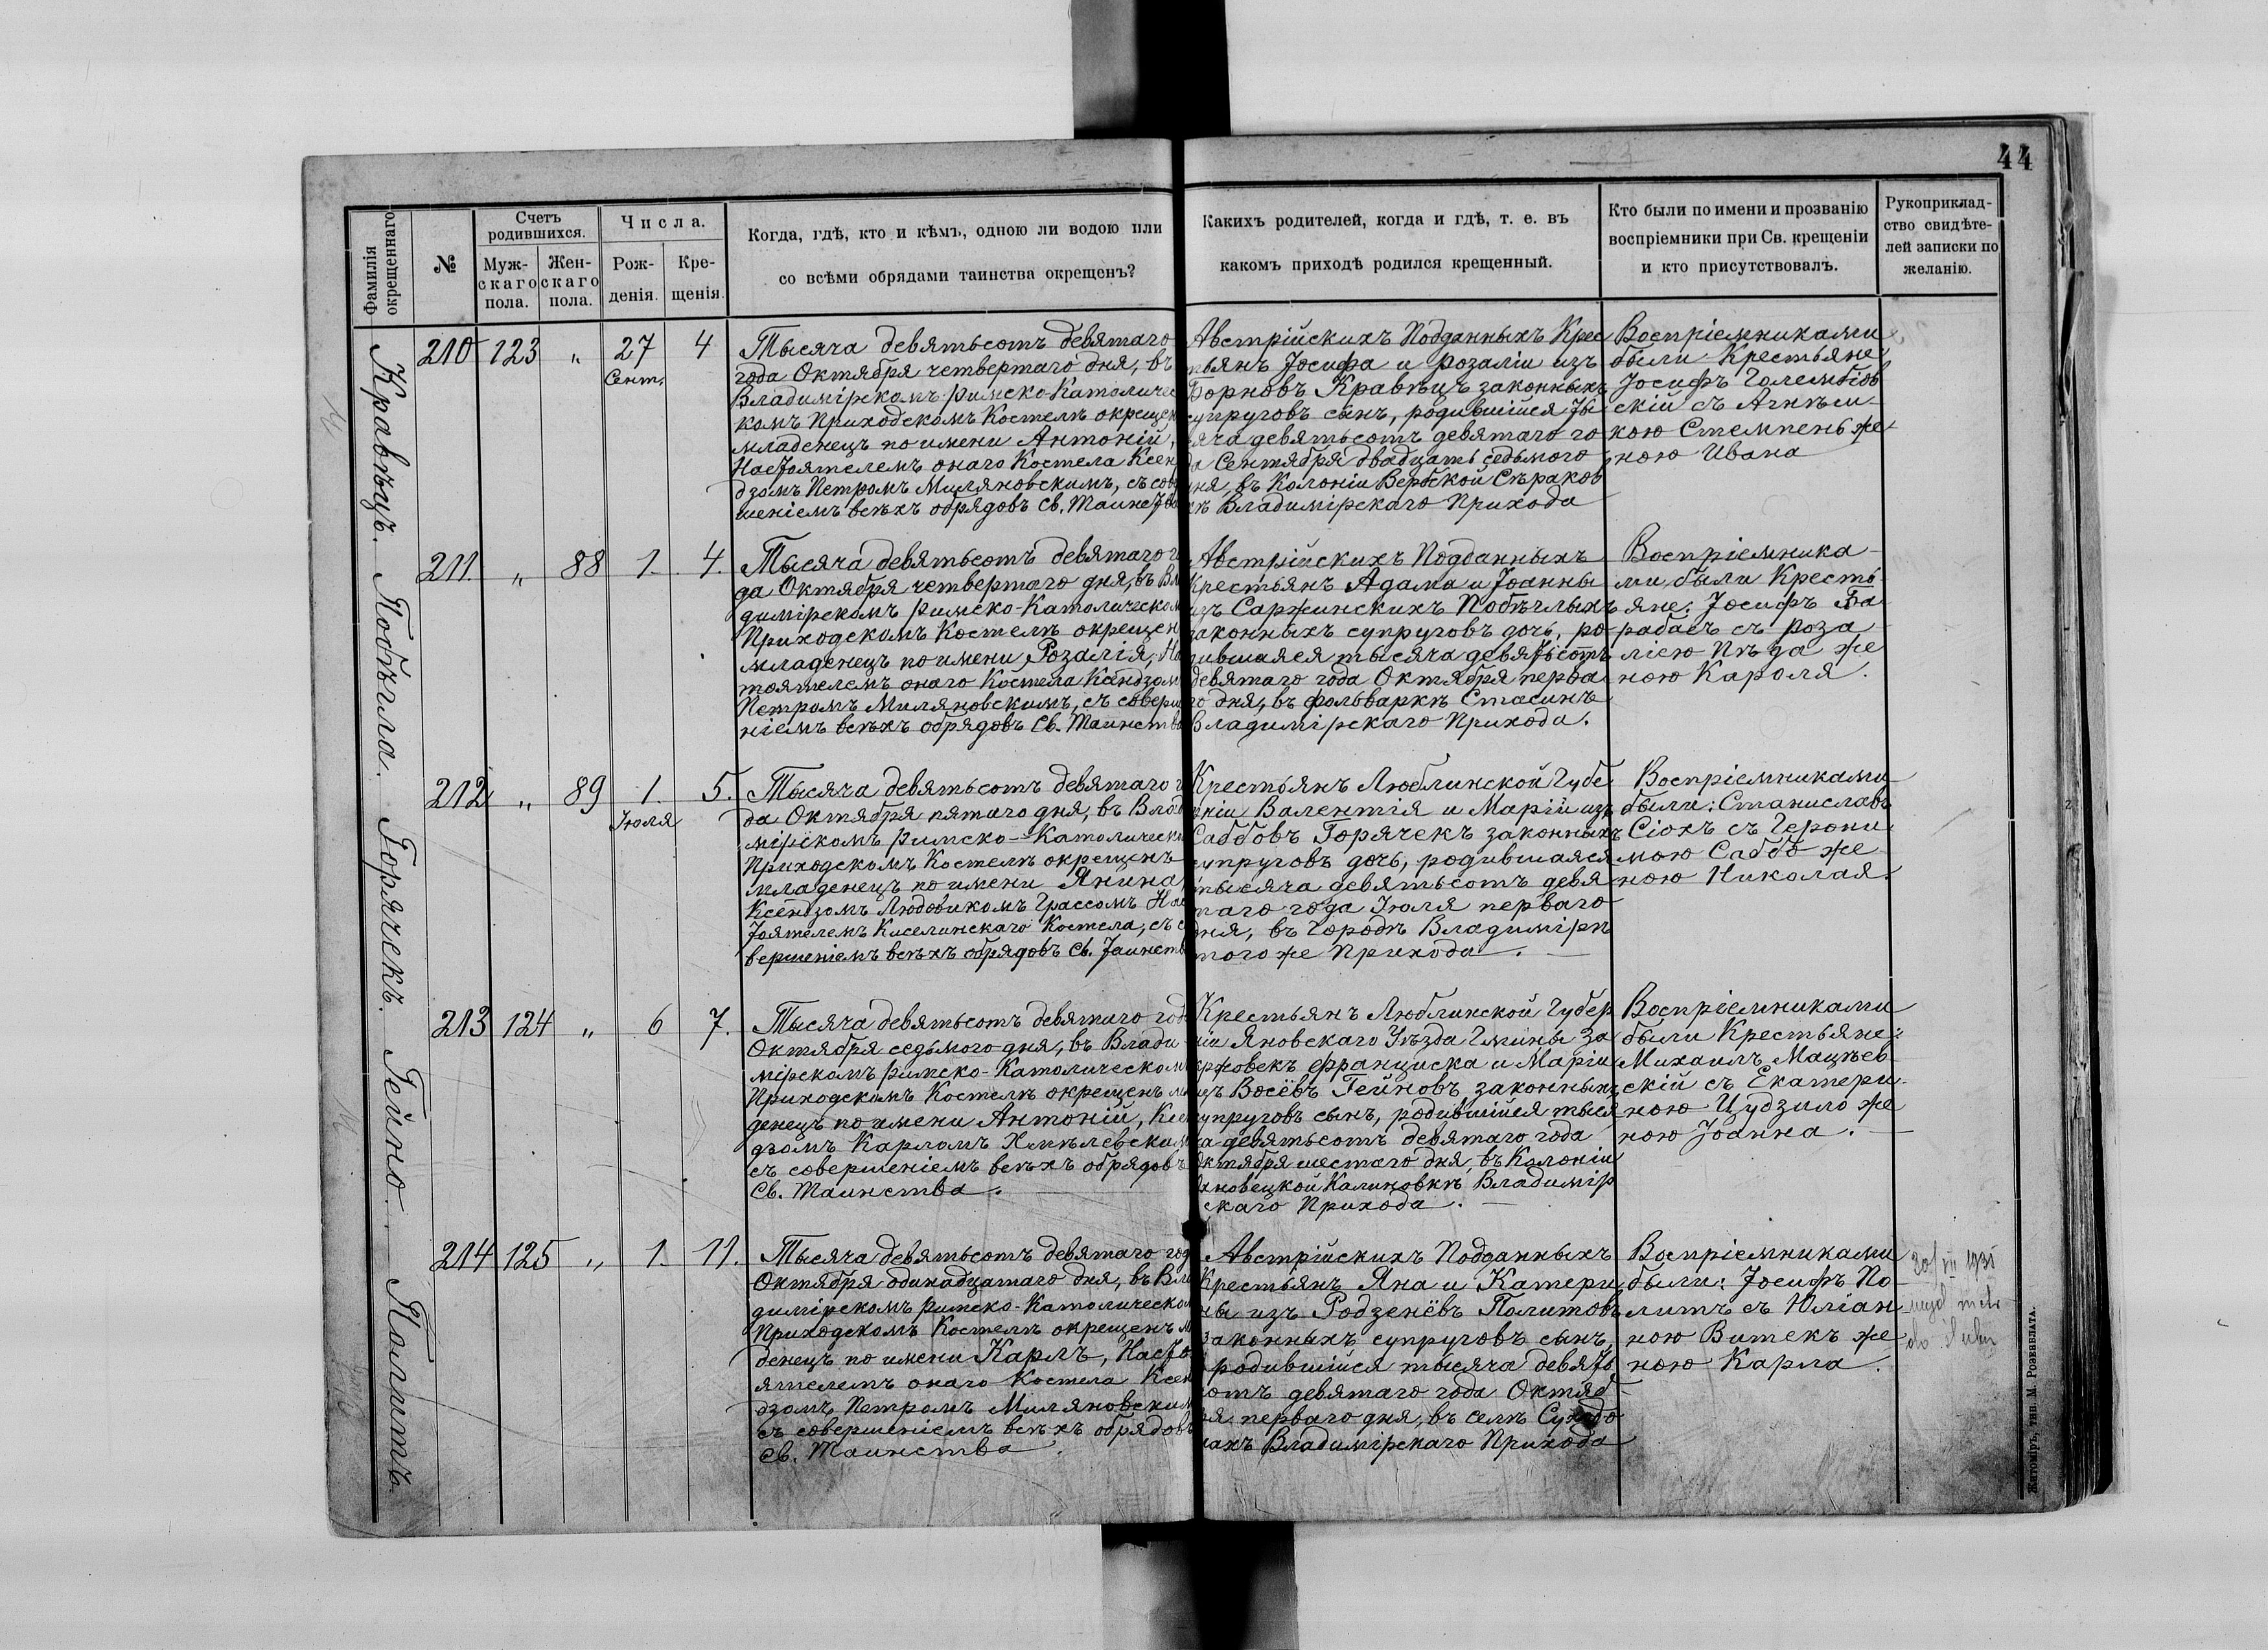 44
Фамилія окрещеннаго
№
Счетъ родившихся.
Муж-
скаго
пола.
Жен-
скаго
пола.
Числа.
Рож-
денія.
Кре-
щенія.
Когда, гдѣ, кто и кѣмъ, одною ли водою или
со всѣми обрядами таинства окрещенъ?
Какихъ родителей, когда и гдѣ, т. е. въ
какомъ приходѣ родился крещенный.
Кто были по имени и прозванію
воспріемники при Св. крещеніи
и кто присутствовалъ.
Рукоприклад-
ство свидѣте-
лей записки по
желанію.
Кравѣцъ.
210 123 „ 27 4
Сент.
Тысяча девятьсотъ девятаго
года Октября четвертаго дня, въ
Владимірскомъ Римско-Католичес
комъ Приходскомъ Костелѣ окрещен
младенецъ по имени Антоній,
Настоятелемъ онаго Костела Ксен
дзомъ Петромъ Миляновскимъ, съ сов
шеніемъ всѣхъ обрядовъ Св. Таинства
Австрійскихъ Подданныхъ Крес
тьянъ Іосифа и Розаліи изъ
Борновъ Кравѣцъ законныхъ
супруговъ сынъ, родившійся Ты
яча девятьсотъ девятаго го
да Сентября двадцать седьмого
дня, въ Колоніи Вербской Сѣраков
кѣ Владимірскаго Прихода
Воспріемниками
были Крестьяне
Іосифъ Голембіов
скій съ Агнѣш-
кою Стемпень же-
ною Ивана
Побѣгла.
211. „ 88 1. 4.
Тысяча девятьсотъ девятаго г
да Октября четвертаго дня, въ Вла
димірскомъ Римско-Католическом
Приходскомъ Костелѣ окрещен
младенецъ по имени Розалія, На
тоятелемъ онаго Костела Ксендзом
Петромъ Миляновскимъ, съ соверш
ніемъ всѣхъ обрядовъ Св. Таинства
Австрійскихъ Подданныхъ
Крестьянъ Адама и Іоанны
изъ Саржинскихъ Побѣглыхъ
законныхъ супруговъ дочь, ро-
дившаяся тысяча девятьсотъ
девятаго года Октября перва
го дня, въ фольваркѣ Стасинъ
Владимірскаго Прихода.
Воспріемника-
ми были Кресть-
яне: Іосифъ Ба-
рабасъ съ Роза-
ліею Пѣзда же
ною Кароля.
Горячекъ.
212 „ 89 1. 5.
Іюля
Тысяча девятьсотъ девятаго г
да Октября пятаго дня, въ Влад
мірскомъ Римско-Католическ
Приходскомъ Костелѣ окрещенъ
младенецъ по имени Янина,
Ксендзомъ Людовикомъ Грассомъ Нас
тоятелемъ Киселинскаго Костела, съ с
вершеніемъ всѣхъ обрядовъ Св. Таинств
Крестьянъ Люблинской Губе
рніи Валентія и Маріи изъ
Саббовъ Горячекъ законныхъ
супруговъ дочь, родившаяся
тысяча девятьсотъ девя
таго года Іюля перваго
дня, въ Городѣ Владимірѣ
того же Прихода.
Воспріемниками
были: Станиславъ
Сіохъ съ Герони
мою Саббо же
ною Николая.
Гейно.
213 124 „ 6 7.
Тысяча девятьсотъ девятаго год
Октября седьмого дня, въ Влади-
мірскомъ Римско-Католическом
Приходскомъ Костелѣ окрещенъ мл
денецъ по имени Антоній, Ксен
дзомъ Карломъ Хмѣлевским
съ совершеніемъ всѣхъ обрядовъ
Св. Таинства.
Крестьянъ Люблинской Губер
ніи Яновскаго Уѣзда Гмины За
кржовекъ Франциска и Маріи
изъ Восёвъ Гейновъ законныхъ
супруговъ сынъ, родившійся тыся
ча девятьсотъ девятаго года
Октября шестаго дня, въ Колоніи
хновецкой Калиновкѣ Владимір
скаго Прихода.
Воспріемниками
были Крестьяне:
Михаилъ Мацѣев
скій съ Екатери-
ною Цудзило же
ною Іоанна.
Политъ.
214 125 „ 1. 11.
Тысяча девятьсотъ девятаго год
Октября одинадцатаго дня, въ Вла
димірскомъ Римско-Католическом
Приходскомъ Костелѣ окрещенъ м
денецъ по имени Карлъ, Насто
ятелемъ онаго Костела Ксен
дзомъ Петромъ Миляновским
съ совершеніемъ всѣхъ обрядовъ
Св. Таинства.
Австрійскихъ Подданныхъ
Крестьянъ Яна и Катери
ны изъ Родзенёвъ Политовъ
законныхъ супруговъ сынъ,
родившійся тысяча девять
сотъ девятаго года Октяб-
ря перваго дня, въ селѣ Суходо
лахъ Владимірскаго Прихода
Воспріемниками
были: Іосифъ По
литъ съ Юліан
ною Витекъ же
ною Карла.
Житоміръ, тип. М. Розенблата.